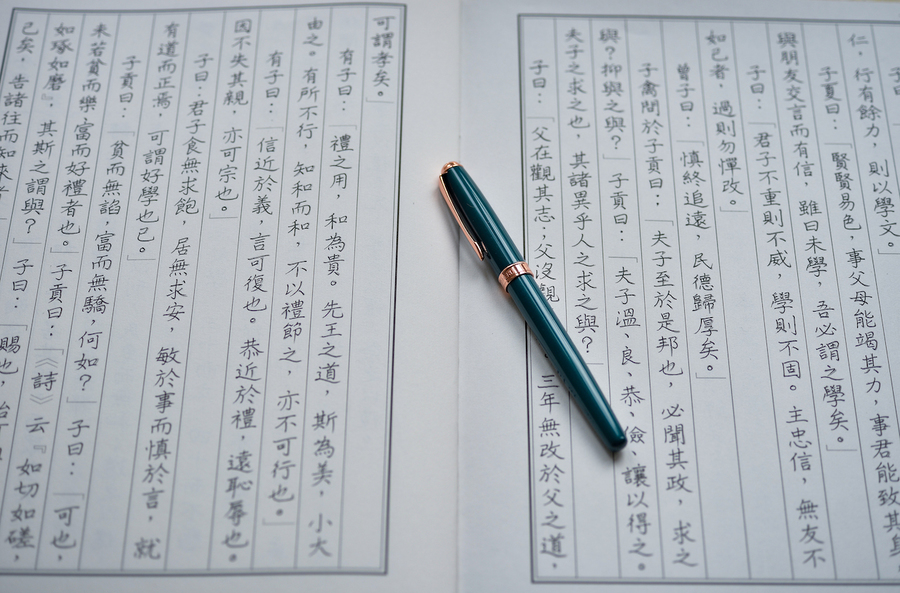 子曰
仁，行有餘力，則以學文。」
子夏曰：「賢賢易色，事父母能竭其力，事君能致其身
與朋友交言而有信，雖曰未學，吾必謂之學矣。」
子曰：「君子不重則不威，學則不固。主忠信，無友不
如己者，過則勿憚改。」
曾子曰：「慎終追遠，民德歸厚矣。」
子禽問於子貢曰：「夫子至於是邦也，必聞其政，求之
與？抑與之與？」子貢曰：「夫子溫、良、恭、儉、讓以得之。
夫子之求之也，其諸異乎人之求之與？」
子曰：「父在觀其志；父沒觀三年無改於父之道，
可謂孝矣。」
有子曰：「禮之用，和為貴。先王之道，斯為美，小大
由之。有所不行，知和而和，不以禮節之，亦不可行也。」
有子曰：「信近於義，言可復也。恭近於禮，遠恥辱也。
因不失其親，亦可宗也。」
子曰：「君子食無求飽，居無求安，敏於事而慎於言，就
有道而正焉，可謂好學也已。」
子貢曰：「貧而無諂，富而無驕，何如？」子曰：「可也，
未若貧而樂，富而好禮者也。」子貢曰：「《詩》云『如切如磋，
如琢如磨』，其斯之謂與？」子曰：「賜也，始
已矣，告諸往而知來者